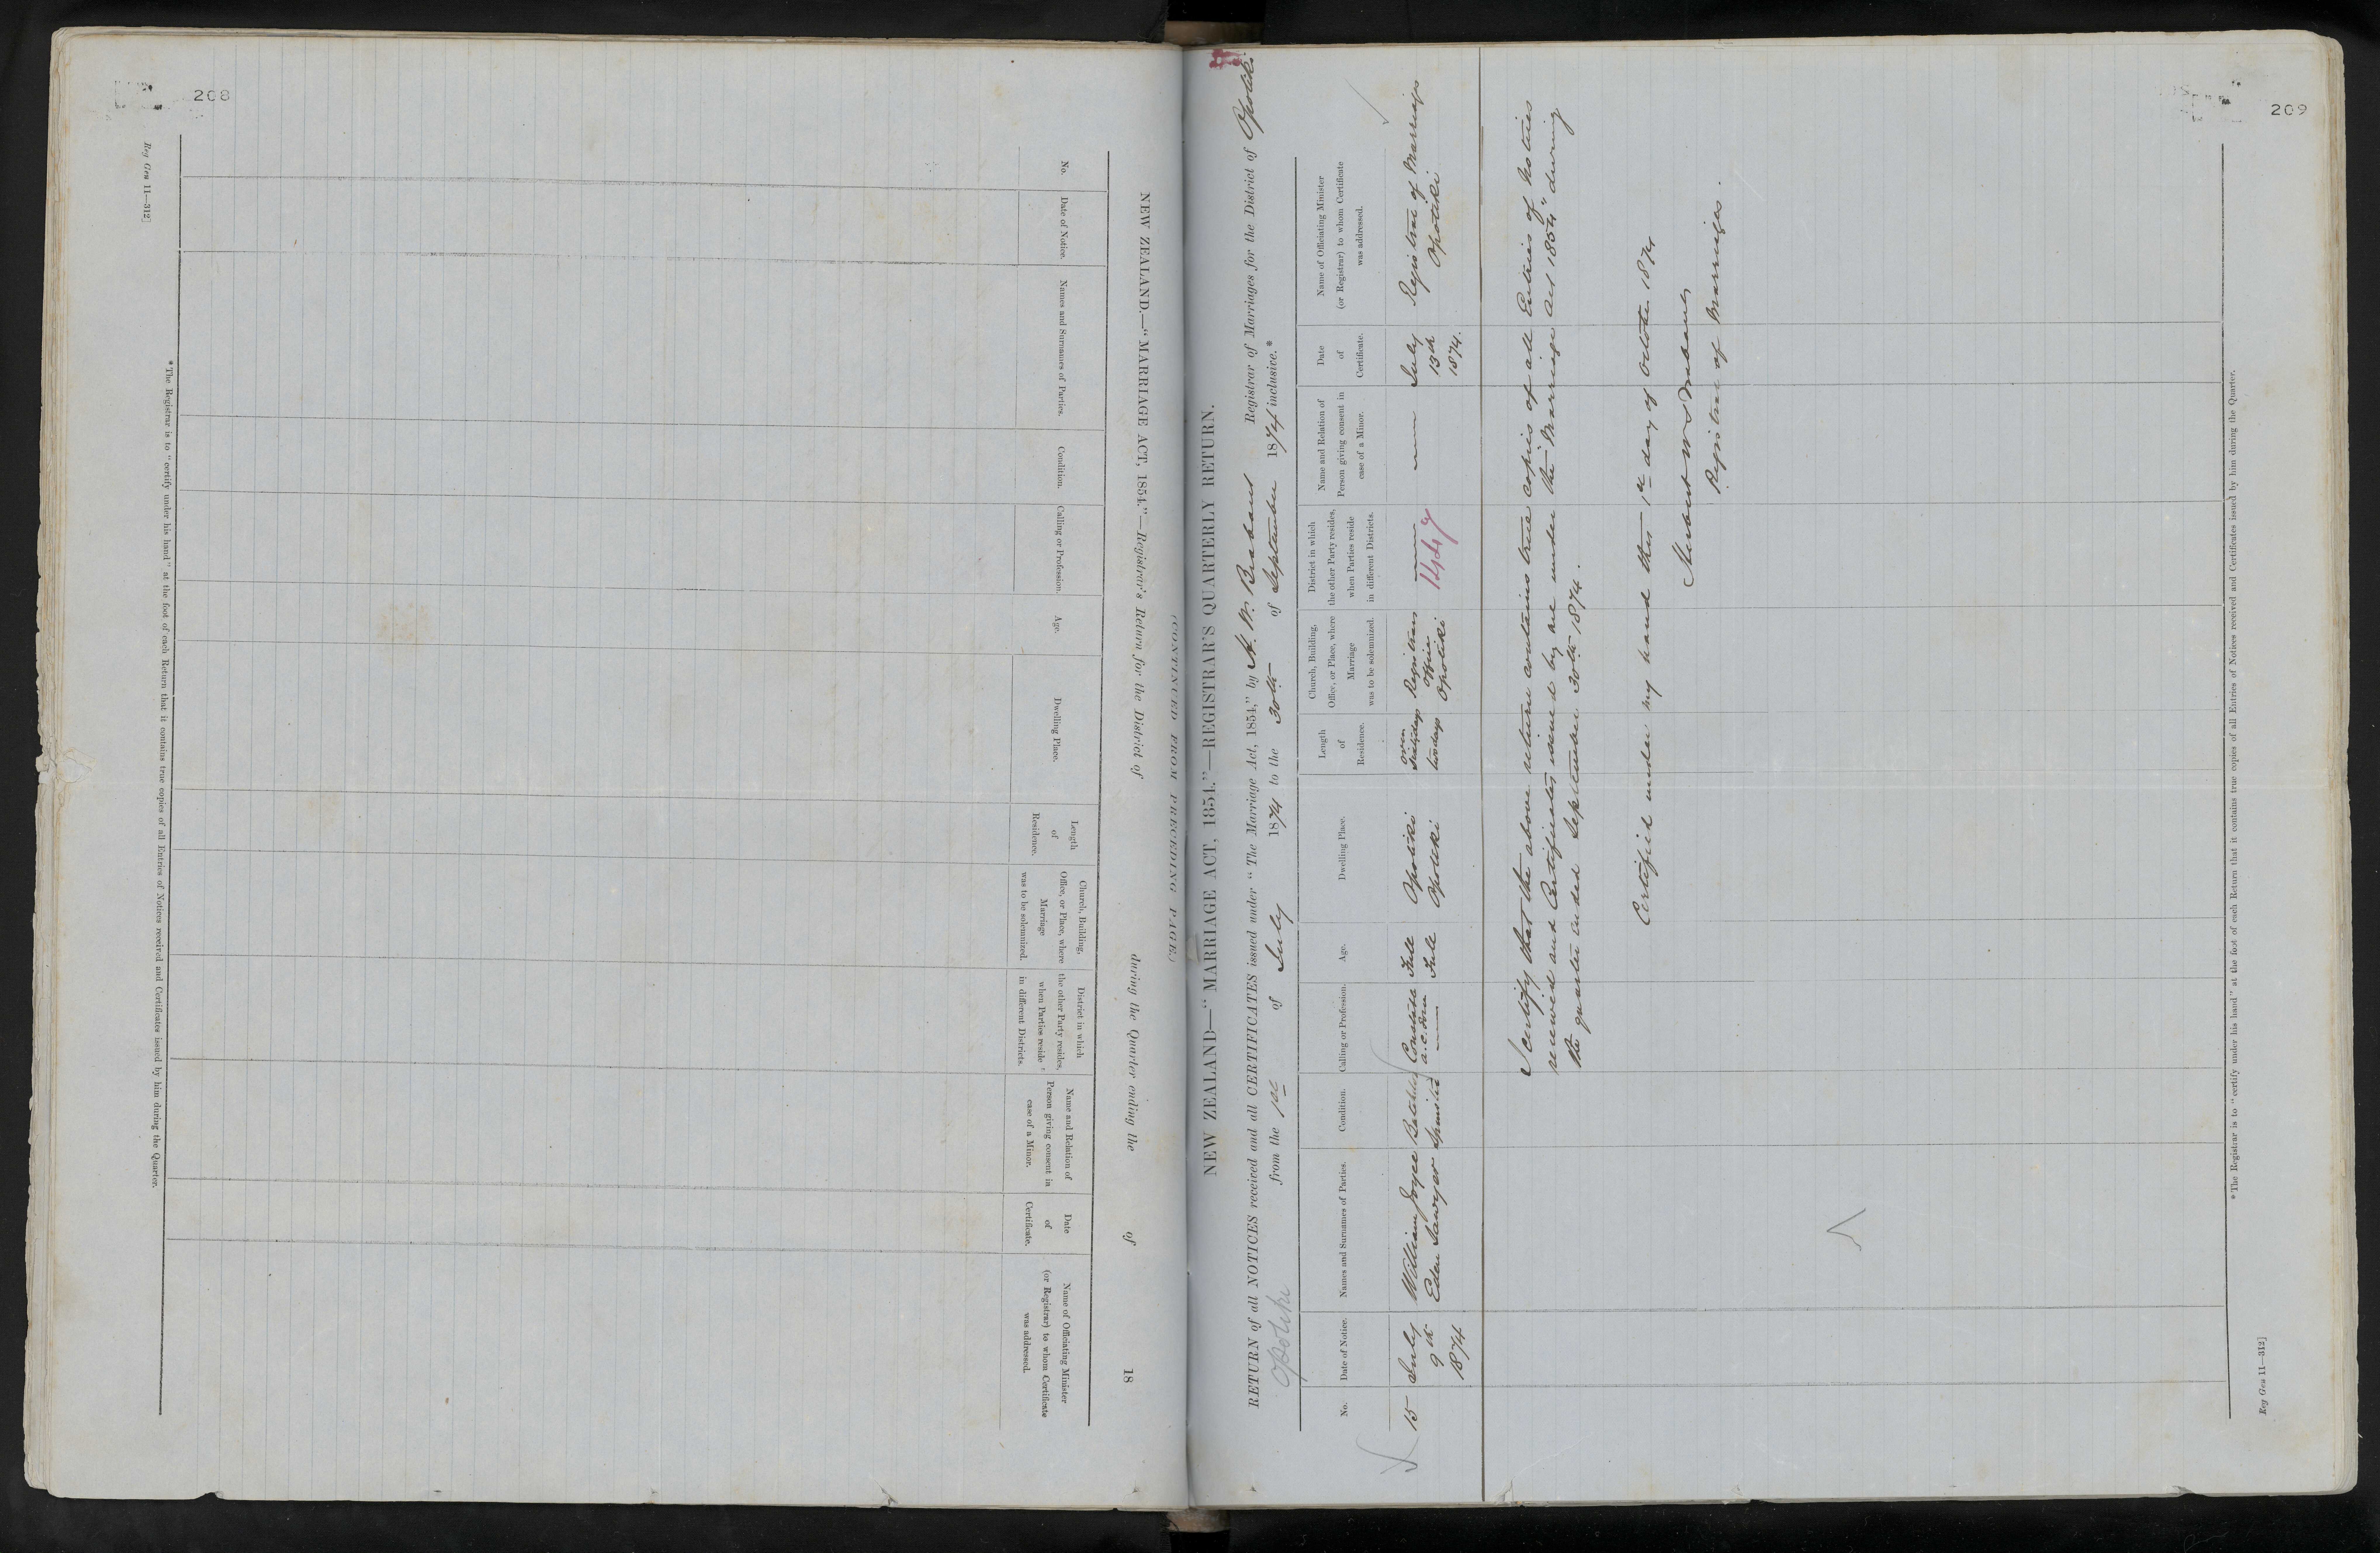 208
(CONTINUED FROM PRECEDING PAGE.)
NEW ZEALAND.—"MARRIAGE ACT, 1854."—Registrar's Return for the District of during the Quarter ending the of 18
No.
Date of Notice.
Names and Surnames of Parties.
Condition.
Calling or Profession.
Age.
Dwelling Place.
Length
of
Residence.
Church, Building,
Office, or Place, where
Marriage
was to be solemnized.
District in which
the other Party resides,
when Parties reside
in different Districts.
Name and Relation of
Person giving consent in
case of a Minor.
Date
of
Certificate.
Name of Officiating Minister
(or Registrar) to whom Certificate
was addressed.
* The Registrar is to "certify under his hand" at the foot of each Return that it contains true copies of all Entries of Notices received and Certificates issued by him during the Quarter.
Reg Gen 11—312]
209
NEW ZEALAND—"MARRIAGE ACT, 1854."—REGISTRAR'S QUARTERLY RETURN.
RETURN of all NOTICES received and all CERTIFICATES issued under "The Marriage Act, 1854," by H. W. Brabant Registrar of Marriages for the District of Opotiki
Opotiki from the 1st of July 1874 to the 30th of September 1874 inclusive.*
No.
Date of Notice.
Names and Surnames of Parties.
Condition.
Calling or Profession.
Age.
Dwelling Place.
Length
of
Residence.
Church, Building,
Office, or Place, where
Marriage
was to be solemnized.
District in which
the other Party resides,
when Parties reside
in different Districts.
Name and Relation of
Person giving consent in
case of a Minor.
Date
of
Certificate.
Name of Officiating Minister
(or Registrar) to whom Certificate
was addressed.
15
July
9th
1874
William Joyce
Eden Sawyer
Batchelor
Spinster
Constable
Full
Full
Opotiki
Opotiki
over
days
Registrars
Office
Opotiki
July
13th
1874.
Registrar of Marriages
Opotiki
I certify that the above return contains true copies of all Entries of Notices
received and Certificates issued by me under the "Marriage Act 1854" during
the quarter ended September 30th 1874.
Certified under my hand this 1st day of October 1874
Herbert W Brabant
Registrar of Marriages.
* The Registrar is to "certify under his hand" at the foot of each Return that it contains true copies of all Entries of Notices received and Certificates issued by him during the Quarter.
Reg Gen 11—312]